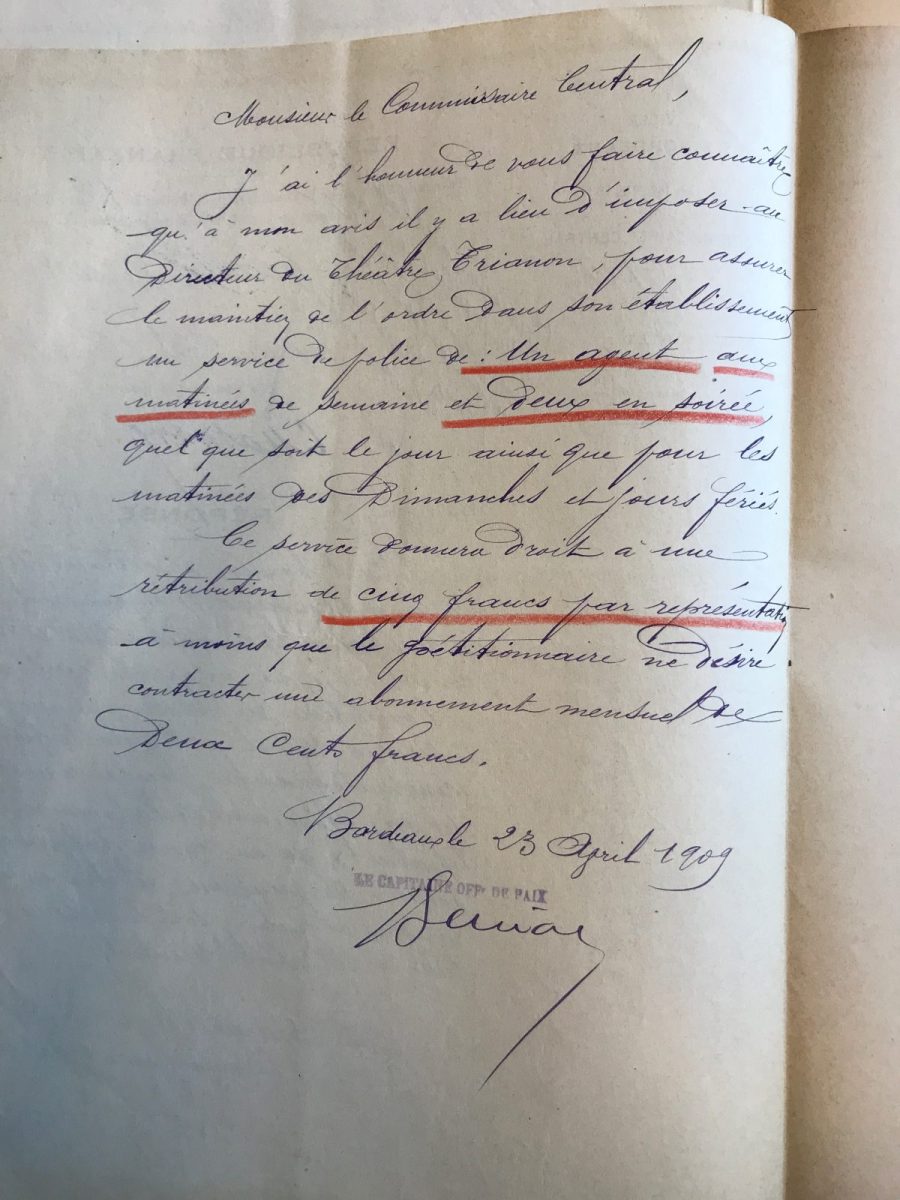 Monsieur le Commissaire Central,
J'ai l'honneur de vous faire connaître
qu'à mon avis il y a lieu d'imposer au
Directeur du Théâtre Trianon, pour assurer
le maintien de l'ordre dans son établissement
un service de police de : Un agent aux
matinées de semaine et deux en soirée,
quel que soit le jour ainsi que pour les
matinées des Dimanches et jours fériés.
Ce service donnera droit à une
rétribution de cinq francs par représentation
à moins que le pétitionnaire ne désire
contracter une abonnement mensuel de
Deux Cents francs.
Bordeaux le 23 April 1909
LE CAPITAINE OFF. DE PAIX